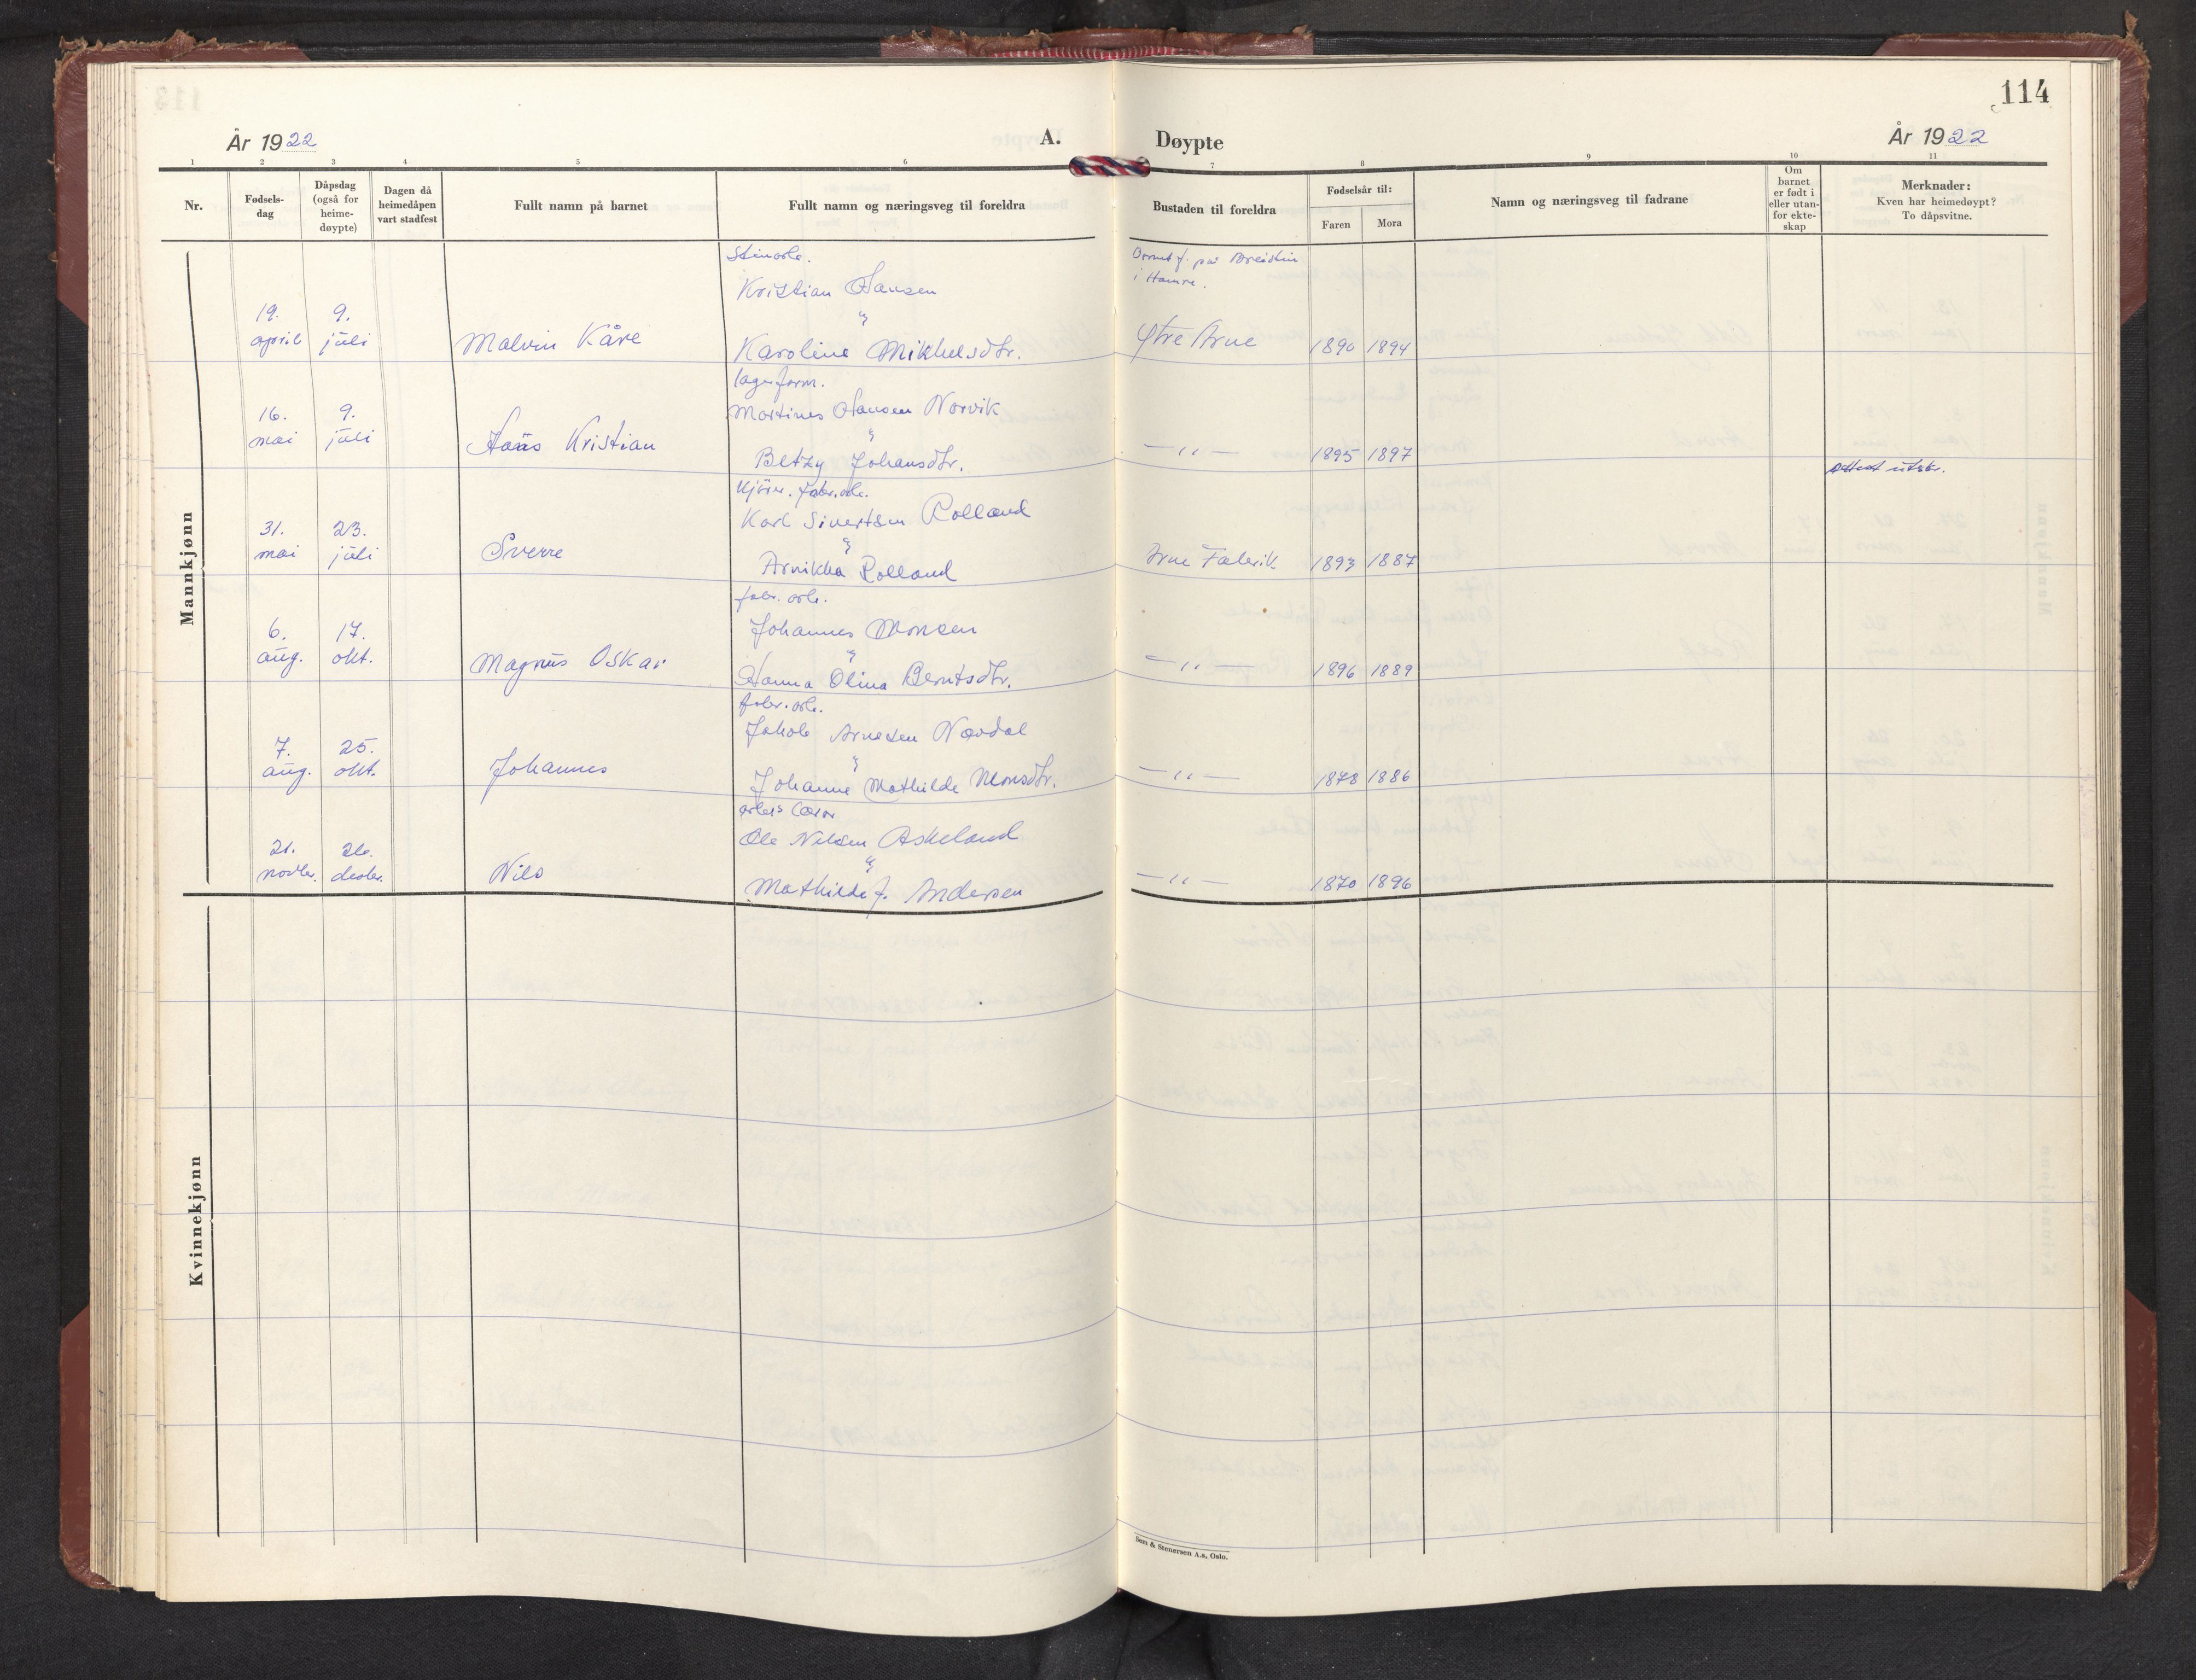 114
År 1922 A. Døypte År 1922
1 2 3 4 5 6 7 8 9 10 11
Nr.
Fødsels-
dag
Dåpsdag
(også for
heime-
døypte)
Dagen då
heimedåpen
vart stadfest
Fullt namn på barnet
Fullt namn og næringsveg til foreldra
Bustaden til foreldra
Fødselsår til:
Faren Mora
Namn og næringsveg til fadrane
Om
barnet
er født i
eller utan-
for ekte-
skap
Merknader:
Kven har heimedøypt?
To dåpsvitne.
Mannkjønn
19. april
9. juli
Malvin Kåre
Kristian Hansen
"
Karoline Mikkelsdtr.
i Hamre.
Ytre Arne
1890 1894
16. mai
9. juli
Hans Kristian
lagerform.
Martines Hansen Norvik
"
Betzy Johansdtr.
— " —
1895 1897
31. mai
23. juli
Sverre
Kjörer. fabr.arb.
Karl Sivertsen Rolland
"
Arnikka Rolland
Arne Fabrik
1893 1887
Attest utskr.
6. aug.
17. okt.
Magnus Oskar
fabr. arb.
Johannes Monsen
"
Hanna Olina Berntsdtr.
— " —
1896 1889
7. aug.
25. okt.
Johannes
fabr. arb.
Jakob Arnesen Navdal
"
Johanne Mathilde Monsdtr.
— " —
1878 1886
21. novbr.
26. desbr.
Nils
Ole Nilsen Askeland
"
Mathilde J. Andersen
— " —
1870 1896
Kvinnekjønn
Sem & Stenersen A.s, Oslo.